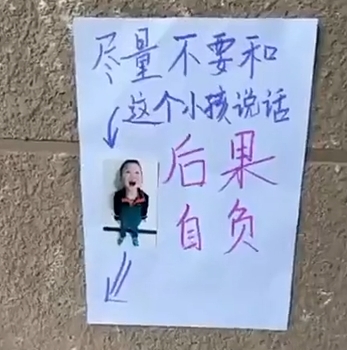 尽量不要和
这个小孩说话
后果
自负